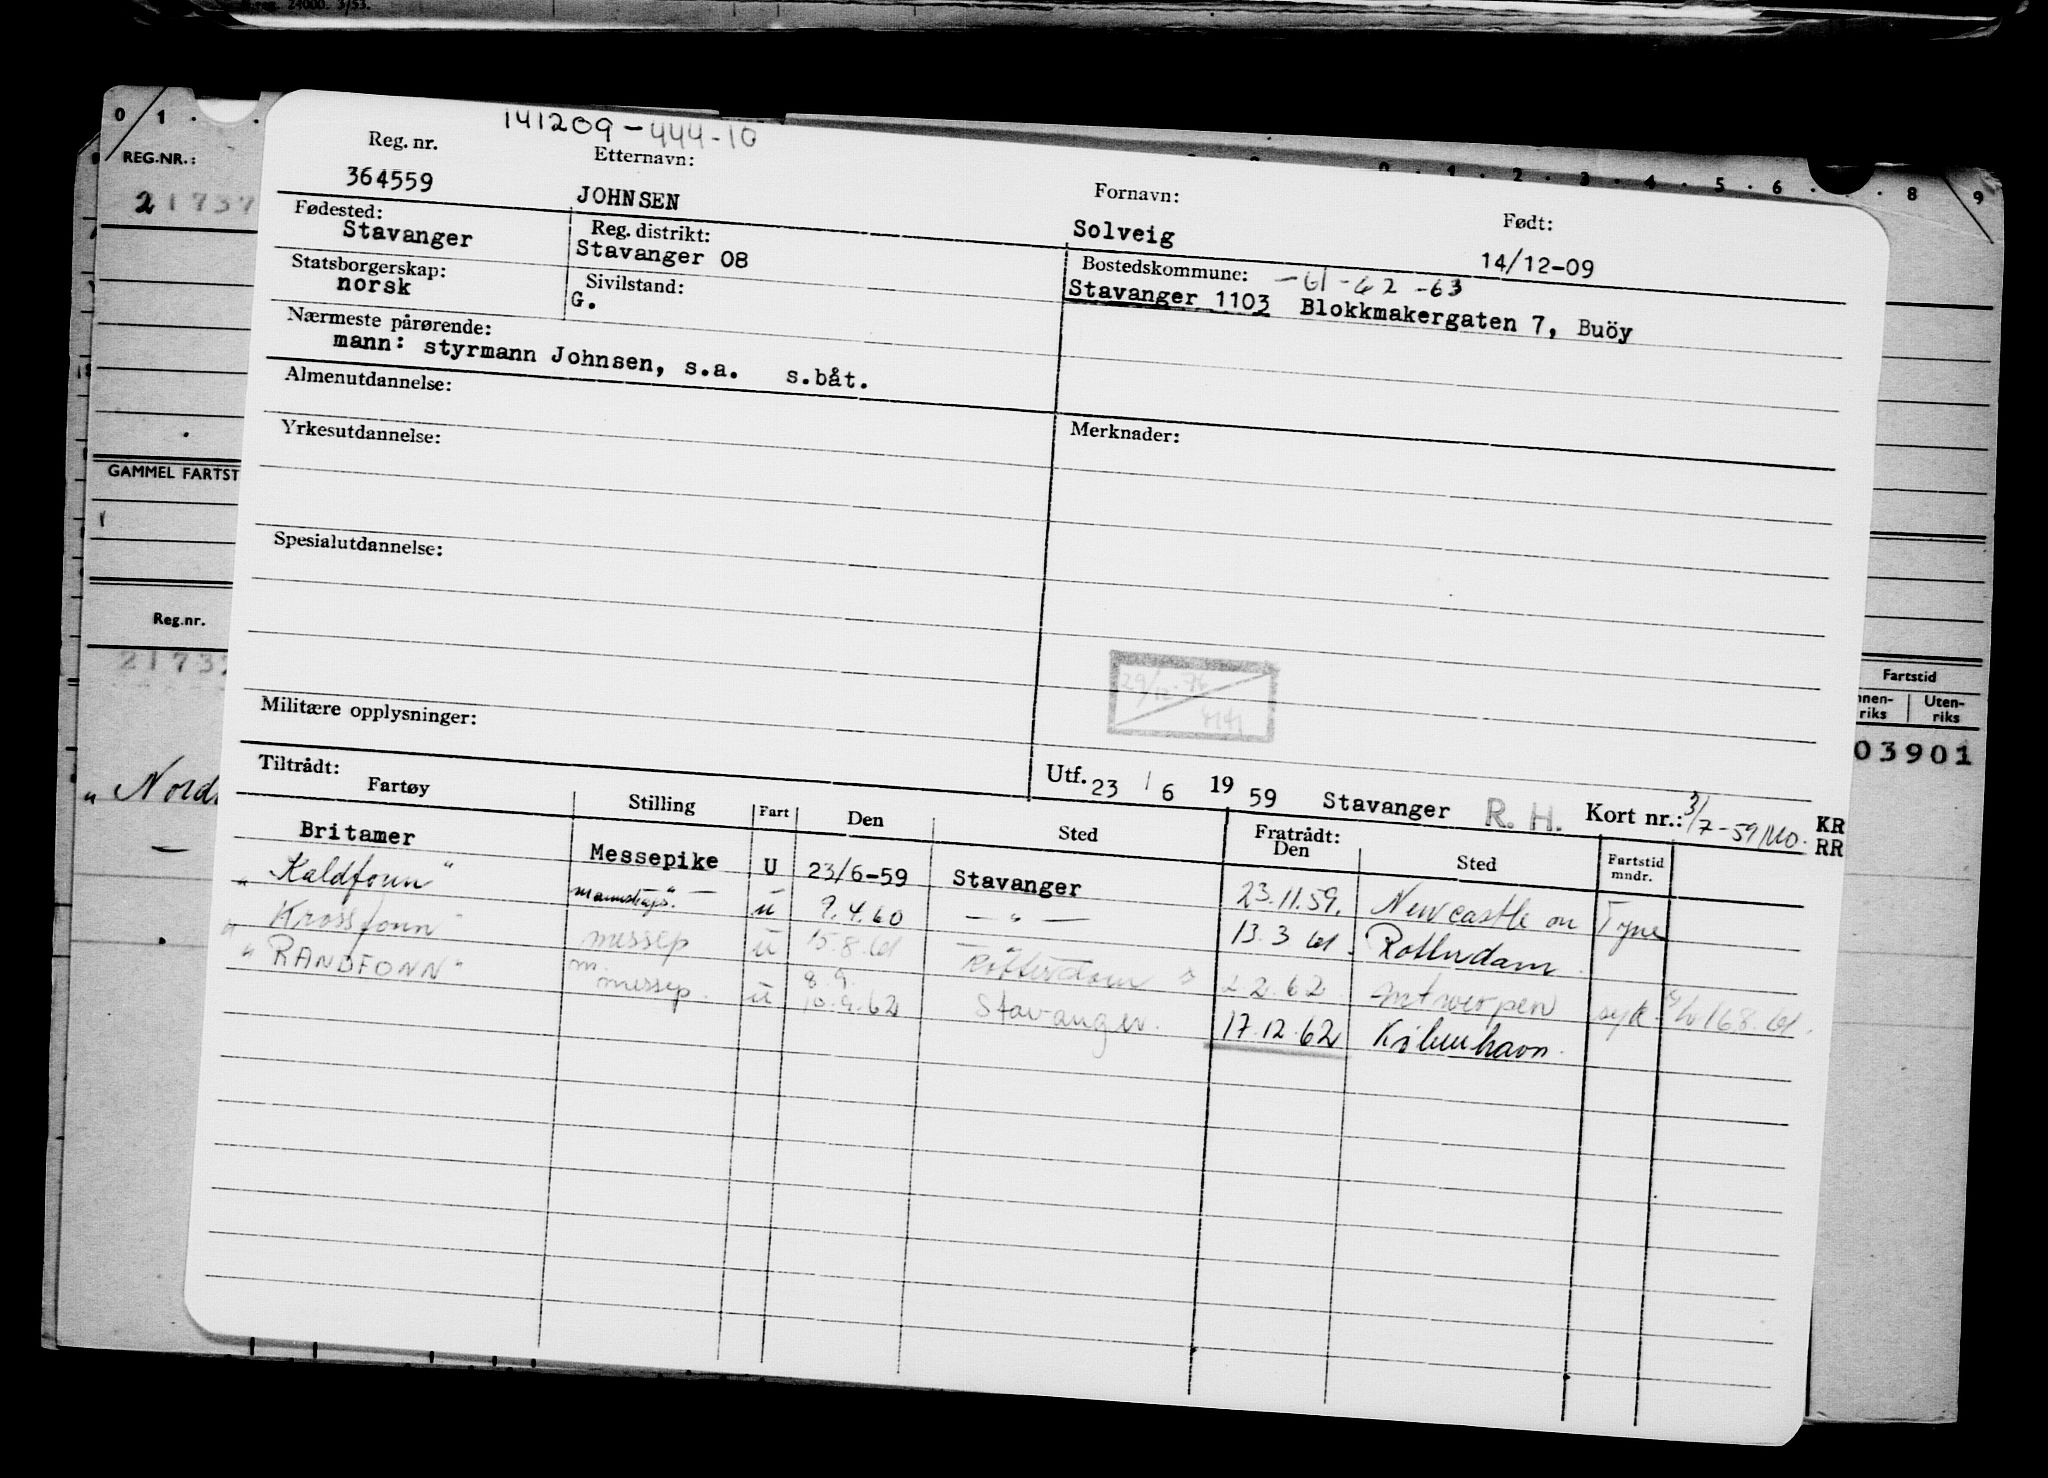 24000. 3/53.
0 1 . .
REG.NR.:
2 1 7 3 7
GAMMEL FARTST
Reg.nr.
2 1 7 3
" Nord
0 . 1 . 2 . 3 . 4 . 5 . 6 . . 8 9
Fartstid
nnen-riks Uten-riks
03901
141209-444-10
Reg. nr. Etternavn: Fornavn: Født:
364559 JOHNSEN Solveig 14/12-09
Fødested: Reg. distrikt: Bostedskommune: -61-62-63
Stavanger Stavanger 08 Stavanger 1103 Blokkmakergaten 7, Buöy
Statsborgerskap: Sivilstand:
norsk G.
Nærmeste pårørende:
mann: styrmann Johnsen, s.a. s.båt.
Almenutdannelse:
Yrkesutdannelse: Merknader:
Spesialutdannelse:
29/12-76
Militære opplysninger:
Utf. 23 / 6 19 59 Stavanger R. H. Kort nr.: 3/7-59 MO. KR
RR
Tiltrådt: Fratrådt:
Fartøy Stilling Fart Den Sted Den Sted Fartstid mndr.
Britamer Messepike U 23/6-59 Stavanger 23.11.59. Newcastle on Tyne
" Kaldfonn " u 9.4.60 — " — 13.3 61. Rotterdam
" Krossfonn " messep u 15.8.61 Rotterdam 2.62 Antwerpen syk
" RANDFONN " m. messep. u 8.9. 10.9.62 Stavanger. 17.12.62 København.